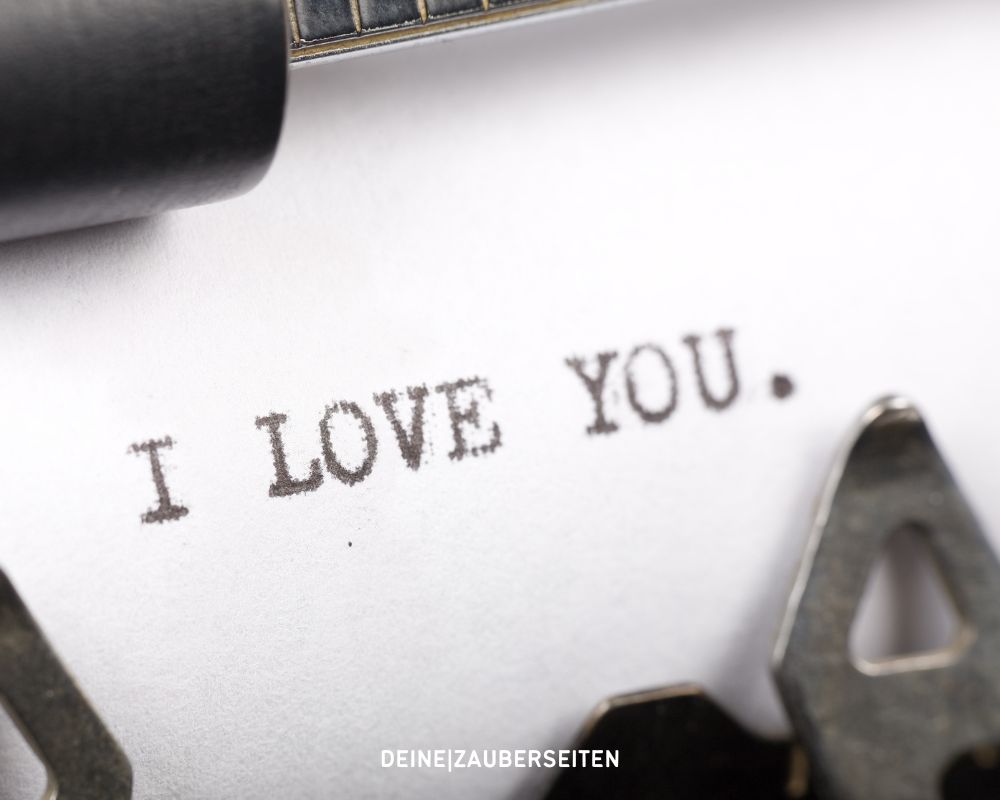 I LOVE YOU.
DEINE|ZAUBERSEITEN